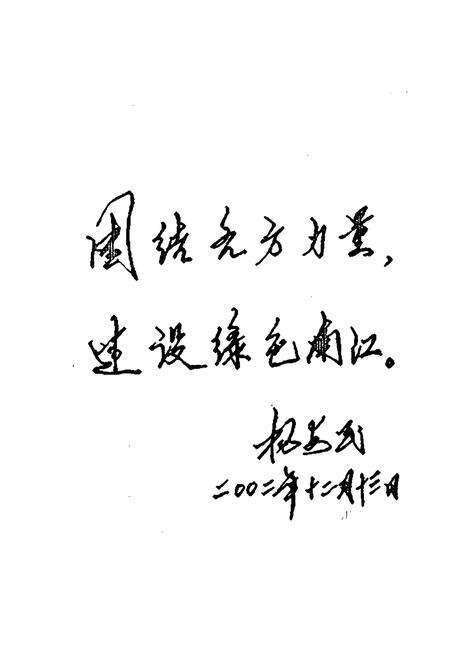 团结各方力量，
建设绿色南江。
杨安民
二〇〇二年十二月十三日